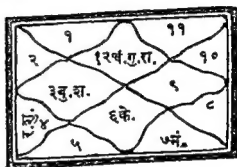 १ ११
२ १२चं.गु.रा. १०
३बु.श. ९
४ ६के. ८
५ ७मं.